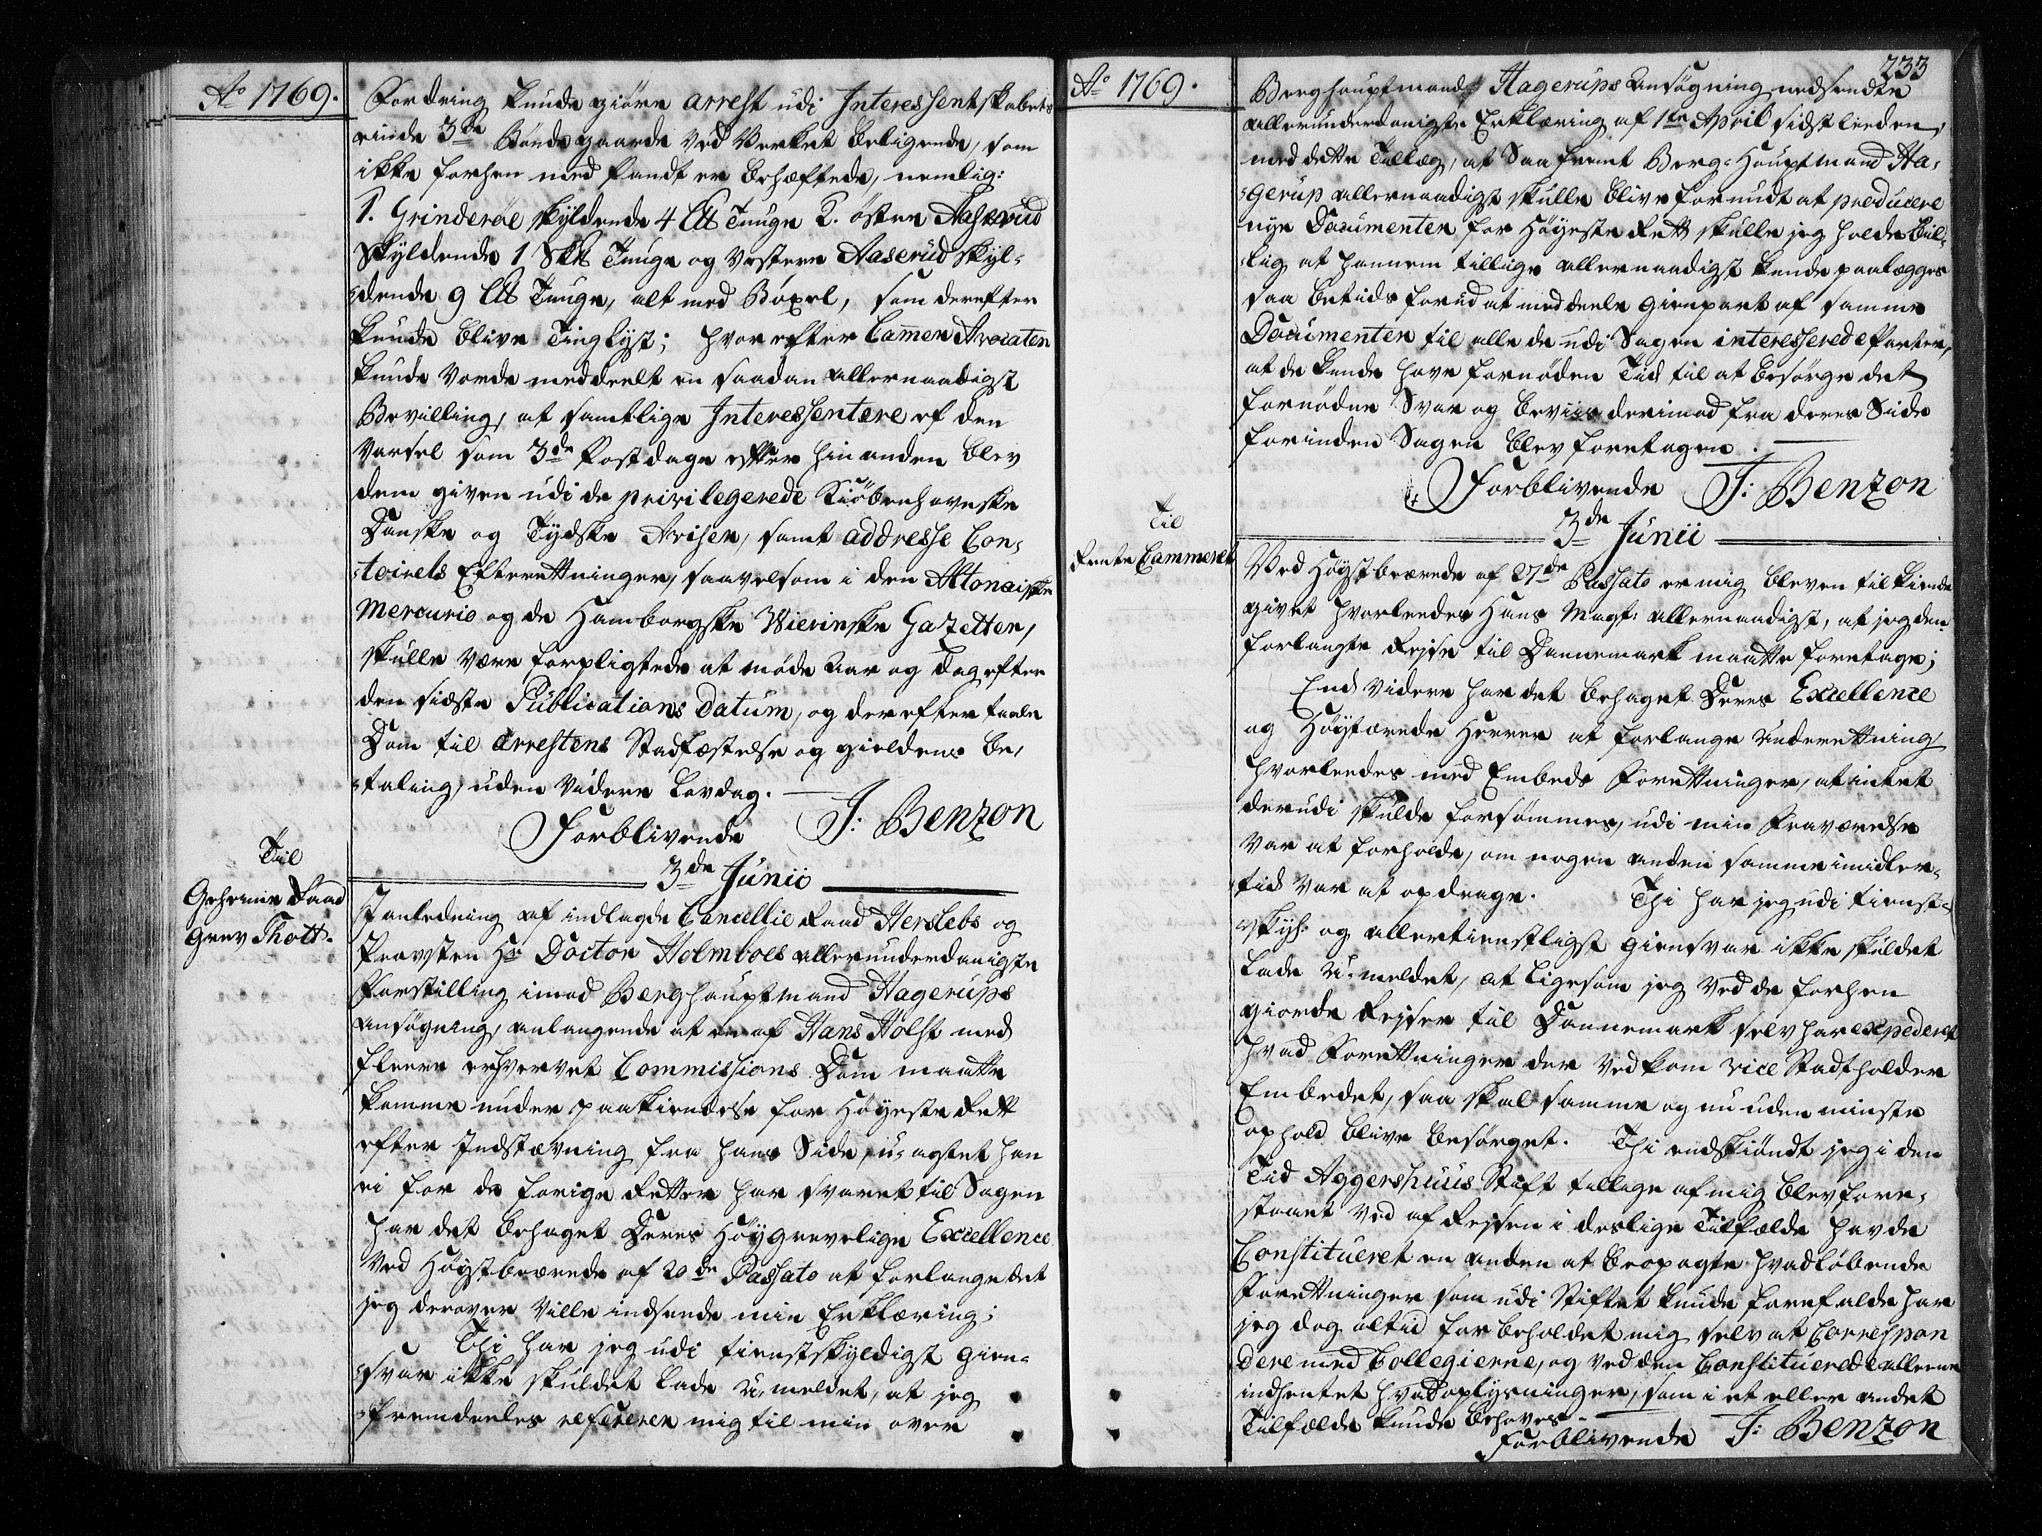 Ao 1769.
Fordring kunde giøre arrest udi Interessentskabets
eiende 3de Bønde gaarde ved Verket beligende, som
ikke forhen med Pandt er behæftede, nemlig:
1. Grinderøe skyldende 4 L℔ Tunge 2. østre Aaserud
skyldende 1 Sk℔ Tunge og Vestere Aaserud skyl-
dende 9 L℔ Tunge, alt med Böxel, som derefter
kunde blive Tinglyst; hvorefter Camer Avocaten
kunde vorde meddeelt en saadan allernaadigst
Bevilling, at samtlige Interessentere ef den
Varsel som 3de Postdage efter hin anden blev
dem given udi de privilegerede Kiöbenhavnske
Danske og Tydske Aviser, samt addresse Con-
toirets Efterretninger, saavelsom i den Altonaiske
Mercurio og de Hamborgske Wierinske Gazetter,
skulle være forpligtede at møde Aar og Dag efter
den sidste Publications Datum, og derefter taale
Dom til arrestens Stadfæstelse og gieldens be-
taling, uden videre Lovdag.
Forblivende J: Benzon
3de Junii
Til
Geheime Raad
Grev Thott.
I anledning af indlagde Cancellie Raad Herslebs og
Provsten Hr Doctor Holmboes allerunderdanigste
Forstilling imod Berghauptmand Hagerups
ansøgning, anlangende at en af Hans Holst med
fleere erhvervet Commissions Dom maatte
komme under paakiendelse for Høyeste Rett
efter Indstævning fra hans Side, u-agtet han
ei for de forige Retter har svaret til Sagen
har det behaget Deres Høygrevelige Excellence
ved Høystbeærede af 20de Passato at forlange det
jeg derover ville indsende min Erklæring;
Thi har jeg udi tienstskyldigst gien-
svar ikke skuldet lade U-meldet, at jeg
fremdeeles refererer mig til min over
Ao 1769.
233
Berghauptmand Hagerups Ansøgning nedsendte
allerunderdanigste Erklæring af 1te April sidstleeden,
med dette Tillæg, at saa fremt Berg-Hauptmand Ha-
gerup allernaadigst skulle blive forundt at producere
nye Documenter for Høyeste Rett skulle jeg holde bil-
lig at hannem tillige allernaadigst kunde paalegges
saa betids forud at meddeele gienpart af samme
Documenter til alle de udi Sagen interesserede Parter,
at de kunde have fornøden Tid til at besørge det
fornødne Svar og beviis derimod fra deres Side
forinden Sagen blev foretagen.
Forblivende J: Benzon
3de Junii
Til
Rente Cammeret
Ved Høystbeærede af 27de Passato er mig bleven tilkiende
givet hvorleedes Hans Mayt: allernaadigst, at jeg den
forlangte Reyse til Dannemark maatte foretage;
End videre har det behaget Deres Excellence
og Høystærede Herrer at forlange underretning
hvorleedes med Embeds Forretninger, at intet
derudi skulde forsømmes, udi min Fraværelse
var at forholde, om nogen anden samme imidler-
tid var at opdrage. Thi har jeg udi tienst-
skyl: og allertienstligst giensvar ikke skuldet
lade U-meldet, at ligesom jeg ved de forhen
giorde Reyser til Dannemark selv har expederet
hvad Forretninger der vedkom vice Stadtholder
Embedet, saa skal samme og nu uden mindste
ophold blive besørget. Thi endskiøndt jeg i den
Tid Aggershuus Stift tillige af mig blev fore-
staaet ved af Reysen i deslige Tilfælde havde
Constitueret en anden at beopagte hvad løbende
Forretninger som udi Stiftet kunde forefalde har
jeg dog altid forbeholdet mig selv at Correspon
dere med Collegierne, og ved den Constituerede allene
indhentet hvad oplysninger, som i et eller andet
Tilfælde kunde behøves.
Forblivende J: Benzon